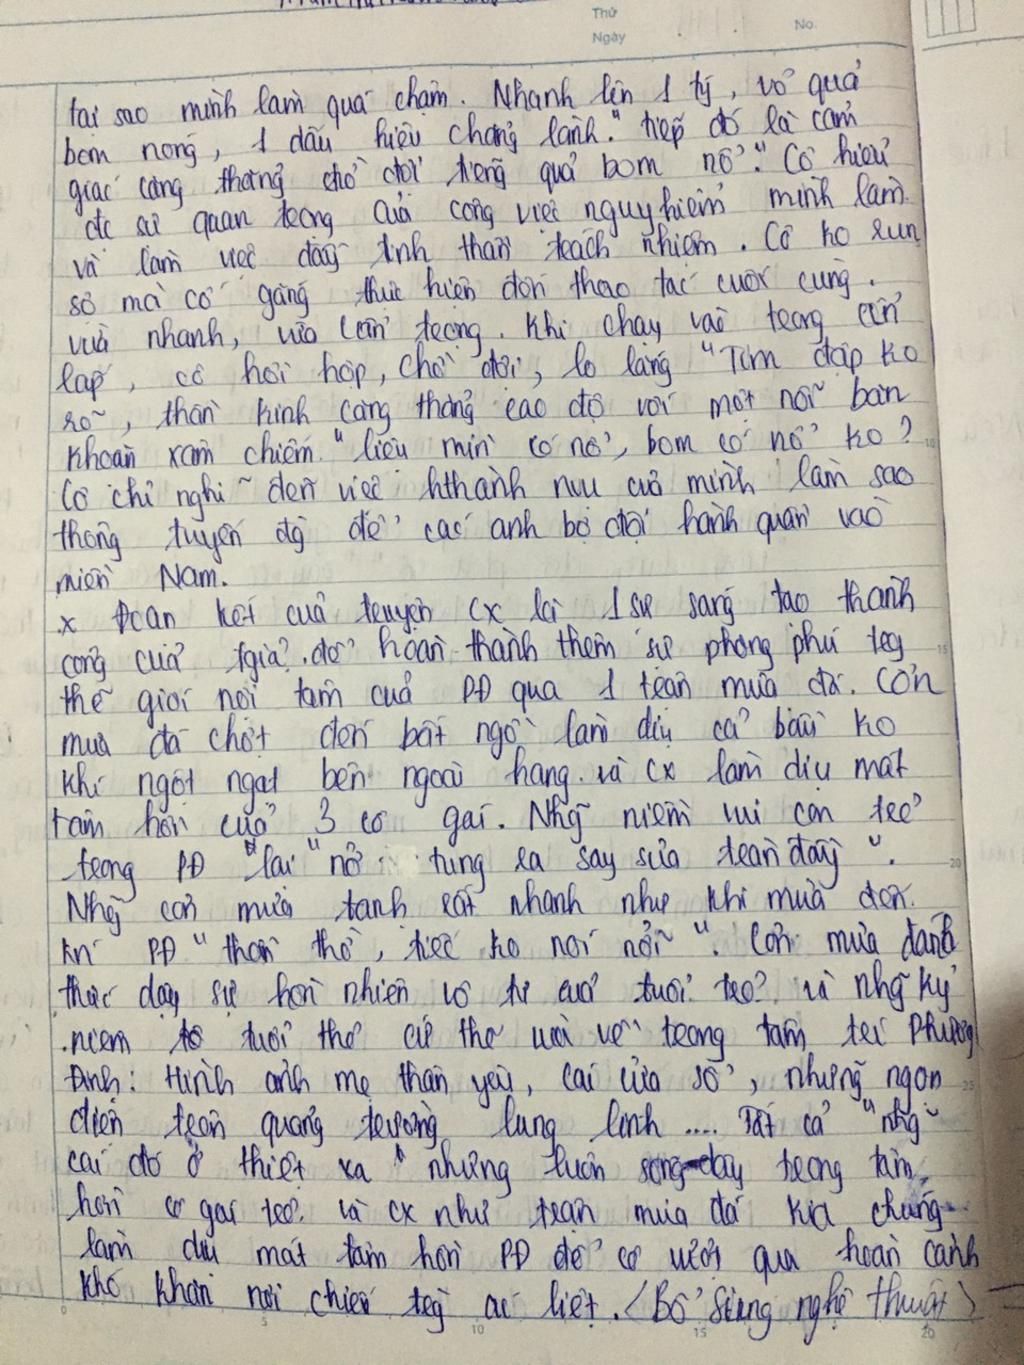 Thứ
Ngày
No.
tại sao mình làm quá chậm. Nhanh lên 1 tý, vỏ quả
bom nóng, 1 dấu hiệu chẳng lành." tiếp đó là cảm
giác căng thẳng chờ đợi tiếng quả bom nổ". Cô hiểu
đc sự quan trọng của công việc nguy hiểm mình làm
và làm việc đầy tinh thần trách nhiệm. Cô ko run
sợ mà cố gắng thực hiện đến thao tác cuối cùng.
vừa nhanh, vừa cẩn trọng. Khi chạy vào trong
lấp, cô hồi hộp, chờ đợi, lo lắng "Tim đập ko
rõ, thần kinh căng thẳng cao độ với một nỗi băn
khoăn xâm chiếm "liệu mìn có nổ, bom có nổ ko?
Cô chỉ nghĩ đến việc hthành nvụ của mình làm sao
thông tuyến để các anh bộ đội hành quân vào
miền Nam.
x Đoạn kết của truyện cx là 1 sự sáng tạo thành
công của tgiả. đó hoàn thành thêm sự phong phú trg
thế giới nội tâm của PĐ qua 1 trận mưa đá. Cơn
mưa đá chợt đến bất ngờ làm dịu cả bầu ko
khí ngột ngạt bên ngoài hang. và cx làm dịu mát
tâm hồn của 3 cô gái. Nhg niềm vui con trẻ
trong PĐ "lại" nở tung ra say sưa tràn đầy".
Nhg cơn mưa tạnh rất nhanh như khi mưa đến.
Kn PĐ "thẫn thờ, tiếc ko nói nổi". Cơn mưa đánh
thức dậy sự hồn nhiên vô tư của tuổi trẻ. và nhg kỷ
niệm tuổi thơ cứ thế ùa về trong tâm trí Phương
Định: Hình ảnh mẹ thân yêu, cái cửa sổ, những ngọn
điện trên quảng trường lung linh .... Tất cả "nhg
cái đó ở thiệt xa" nhưng luôn sống dậy trong tâm
hồn cô gái trẻ. và cx như trận mưa đá kia chúng
làm dịu mát tâm hồn PĐ để cô vượt qua hoàn cảnh
khó khăn nơi chiến trg ác liệt. <Bổ sung nghệ thuật>
5 10 15 20
10
15
20
25